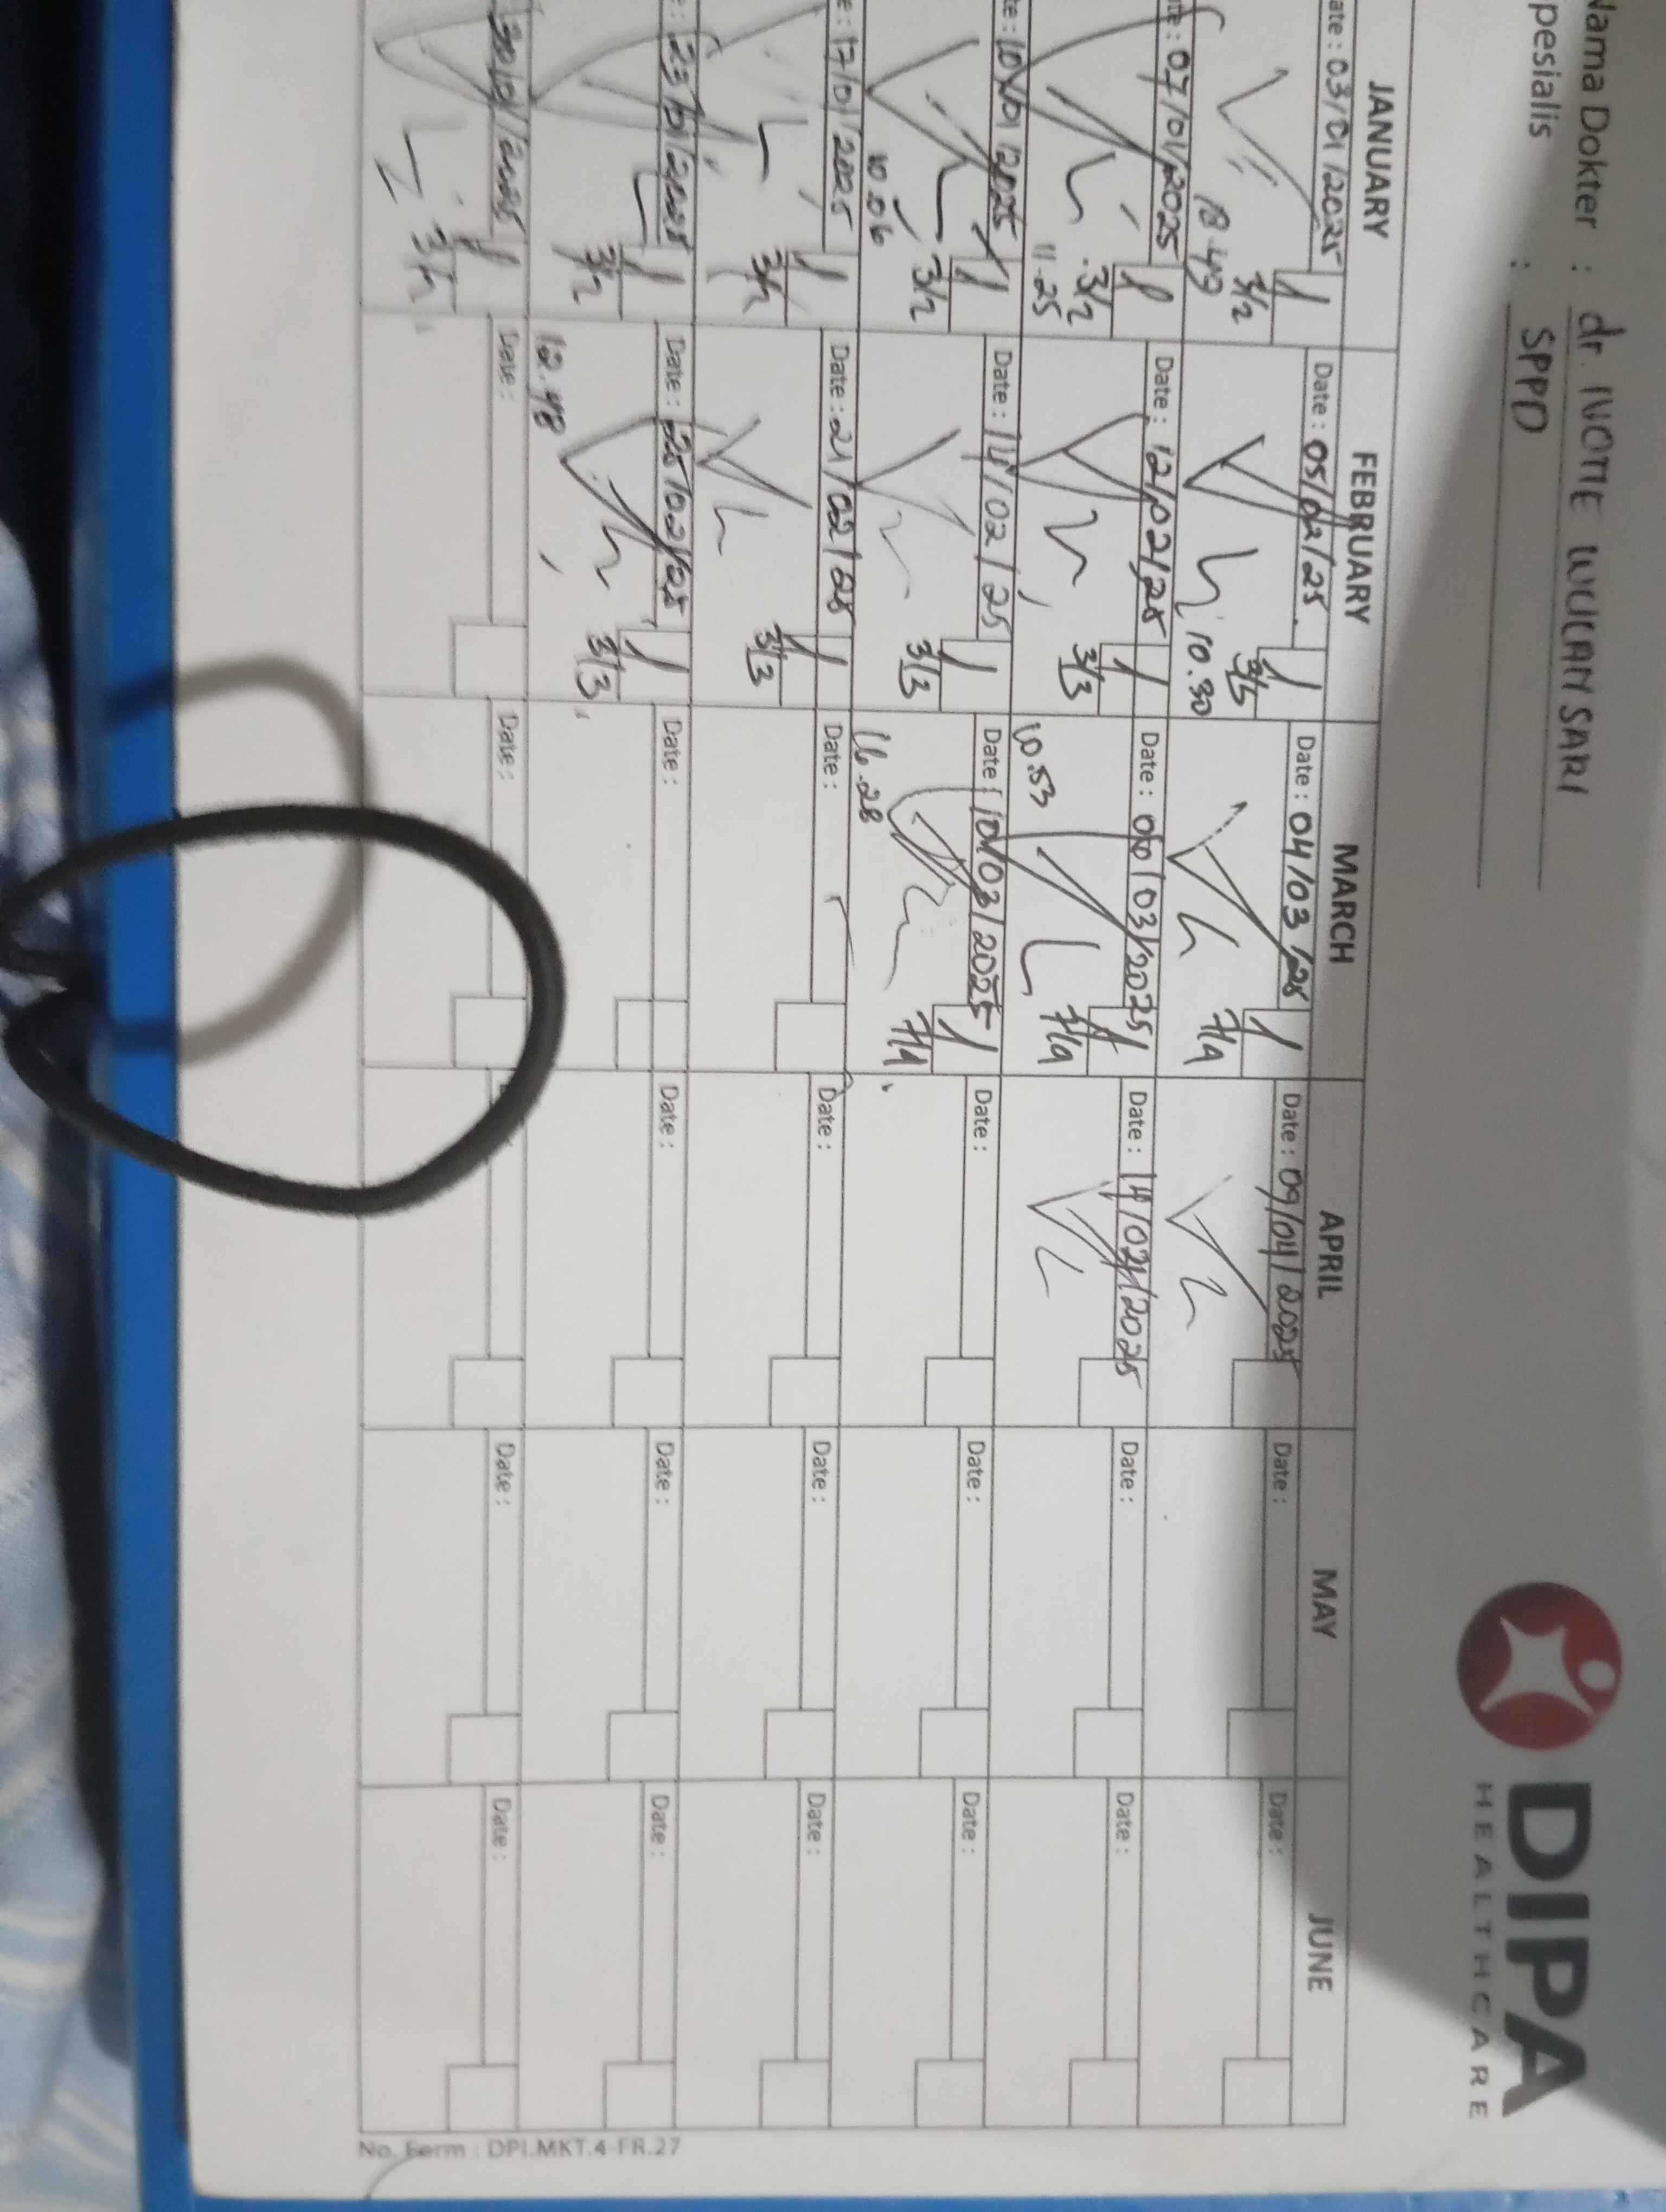 DIPA
HEALTHCARE
Nama Dokter : dr. IVOTTE WULAN SARI
pesialis : SPPD
JANUARY FEBRUARY MARCH APRIL MAY JUNE
ate : 03/01/2025 Date : 05/02/25 Date : 04/03/25 Date : 09/04/2025 Date : Date :
3/2 3/3 7/4
10.30
te : 07/01/2025 Date : 12/02/25 Date : /03/2025 Date : 14/ /2025 Date : Date :
3/2 3/3 7/4
11.25 10.53
te : 10/01/2025 Date : 14/02/25 Date : 10/03/2025 Date : Date : Date :
3/2 3/3 7/4
10.06 16.28
e : 17/01/2025 Date : 21/02/25 Date : Date : Date : Date :
3/2 3/3
: 23/01/2025 Date : 25/02/25 Date : Date : Date : Date :
3/2 3/3
12.48
30/01/2025 Date : Date : Date : Date :
3/2
No. Form : DPI.MKT.4-FR.27